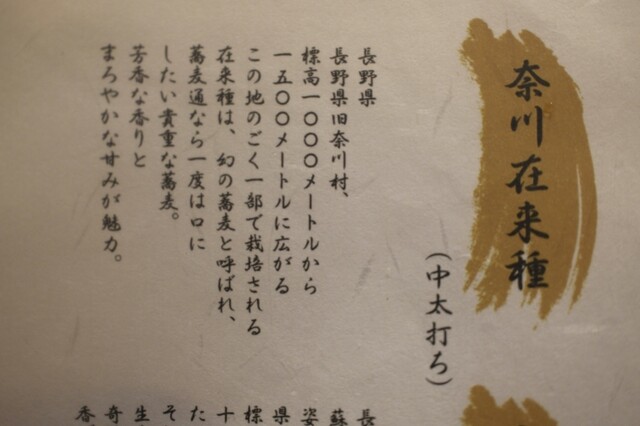 奈川在来種
(中太打ろ)
長野県
長野県旧奈川村、
標高一〇〇〇メートルから
一五〇〇メートルに広がる
この地のごく一部で栽培される
在来種は、幻の蕎麦と呼ばれ、
蕎麦通なら一度は口に
したい貴重な蕎麦。
芳香な香りと
まろやかな甘みが魅力。
長
蘇
姿
県
標
十
た
そ
生
奇
香